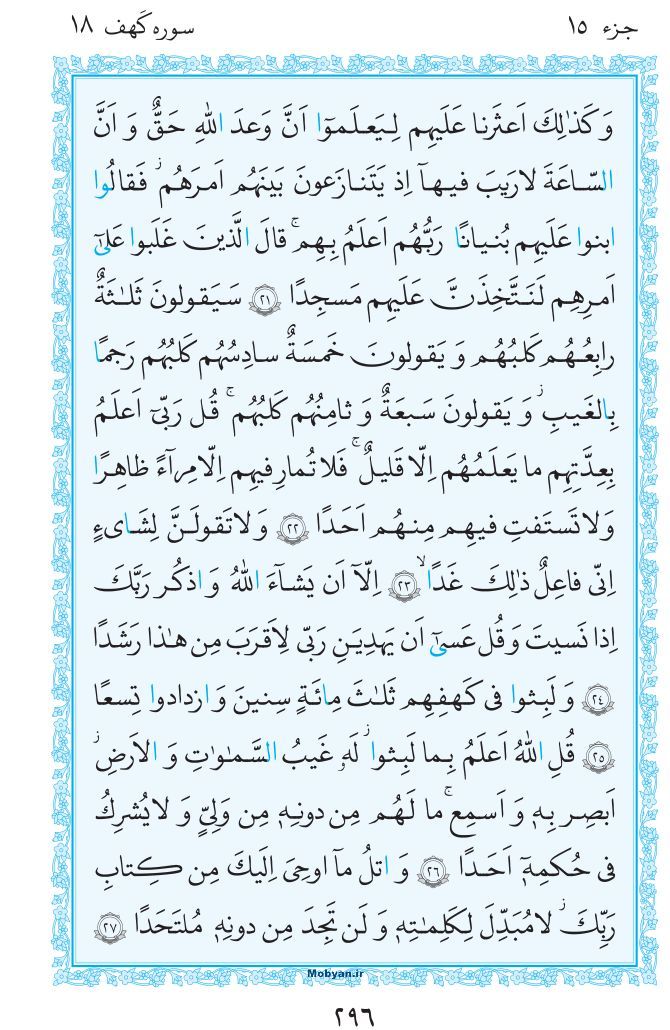 جزء ١٥
سوره كَهف ١٨
وَ كَذٰلِكَ اَعثَرنا عَلَيهِم لِـيَعلَمـوٓا اَنَّ وَعدَ اللهِ حَقٌّ وَ اَنَّ
السّـاعَةَ لا رَيبَ فيـهـآ اِذ يَتَنازَعونَ بَينَهُم اَمرَهُمۖ فَقالُوا
ابنوا عَلَيهِم بُنيانًاۖ رَبُّهُم اَعلَمُ بِـهِمۚ قالَ الَّذينَ غَلَبوا عَلىٰٓ
اَمرِهِم لَنَـتَّخِذَنَّ عَلَيهِم مَسجِدًا ﴿٢١﴾ سَيَقولونَ ثَلٰـثَةٌ
رابِعُـهُـم كَلبُهُم وَ يَقولونَ خَمسَةٌ سادِسُهُم كَلبُهُم رَجمًا
بِالغَيبِۖ وَ يَقولونَ سَبعَةٌ وَ ثامِنُهُم كَلبُهُمۚ قُل رَبّىٓ اَعلَمُ
بِعِدَّتِهِم ما يَعلَمُهُم اِلّا قَليلٌۗ فَلا تُمارِ فيهِم اِلّا مِرآءً ظاهِرًا
وَ لا تَستَفتِ فيهِـم مِنـهُـم اَحَدًا ﴿٢٢﴾ وَ لا تَقولَنَّ لِشَاىءٍ
اِنّى فاعِلٌ ذٰلِكَ غَدًاۙ ﴿٢٣﴾ اِلّآ اَن يَشآءَ اللهُ وَ اذكُر رَبَّكَ
اِذا نَسيتَ وَ قُل عَسىٰٓ اَن يَهدِيَنِ رَبّى لِاَقرَبَ مِن هٰذا رَشَدًا
﴿٢٤﴾ وَ لَبِثوا فى كَهفِهِم ثَلٰثَ مِائَةٍ سِنينَ وَ ازدادوا تِسعًا
﴿٢٥﴾ قُلِ اللهُ اَعلَمُ بِـما لَبِثواۖ لَهٗ غَيبُ السَّمٰوٰتِ وَ الاَرضِۖ
اَبصِر بِهٖ وَ اَسمِعۚ ما لَهُم مِن دونِـهٖ مِن وَلِىٍّ وَ لا يُشرِكُ
فى حُكمِهٖٓ اَحَـدًا ﴿٢٦﴾ وَ اتلُ مآ اوحِىَ اِلَيكَ مِن كِتابِ
رَبِّكَۖ لا مُبَدِّلَ لِـكَلِمٰتِهٖ وَ لَن تَجِدَ مِن دونِهٖ مُلتَحَدًا ﴿٢٧﴾
Mobyan.ir
٢٩٦